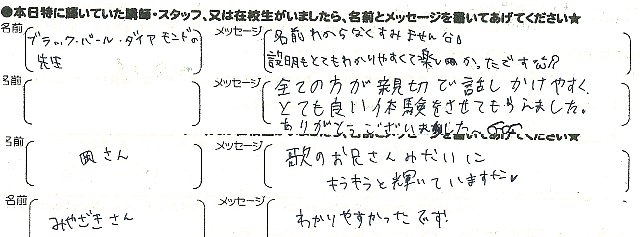 ●本日特に輝いていた講師・スタッフ、又は在校生がいましたら、名前とメッセージを書いてあげてください★
名前
ブラック・パール・ダイヤモンドの
先生
メッセージ
名前わからなくすみません
説明もとてもわかりやすくて楽しかったです
名前
メッセージ
全ての方が親切で話しかけやすく、
とても良い体験をさせてもらえました。
ありがとうございました
てあげてください★
名前
岡さん
メッセージ
歌のお兄さんみたいに
キラキラと輝いていました
名前
みやざきさん
メッセージ
わかりやすかったです!